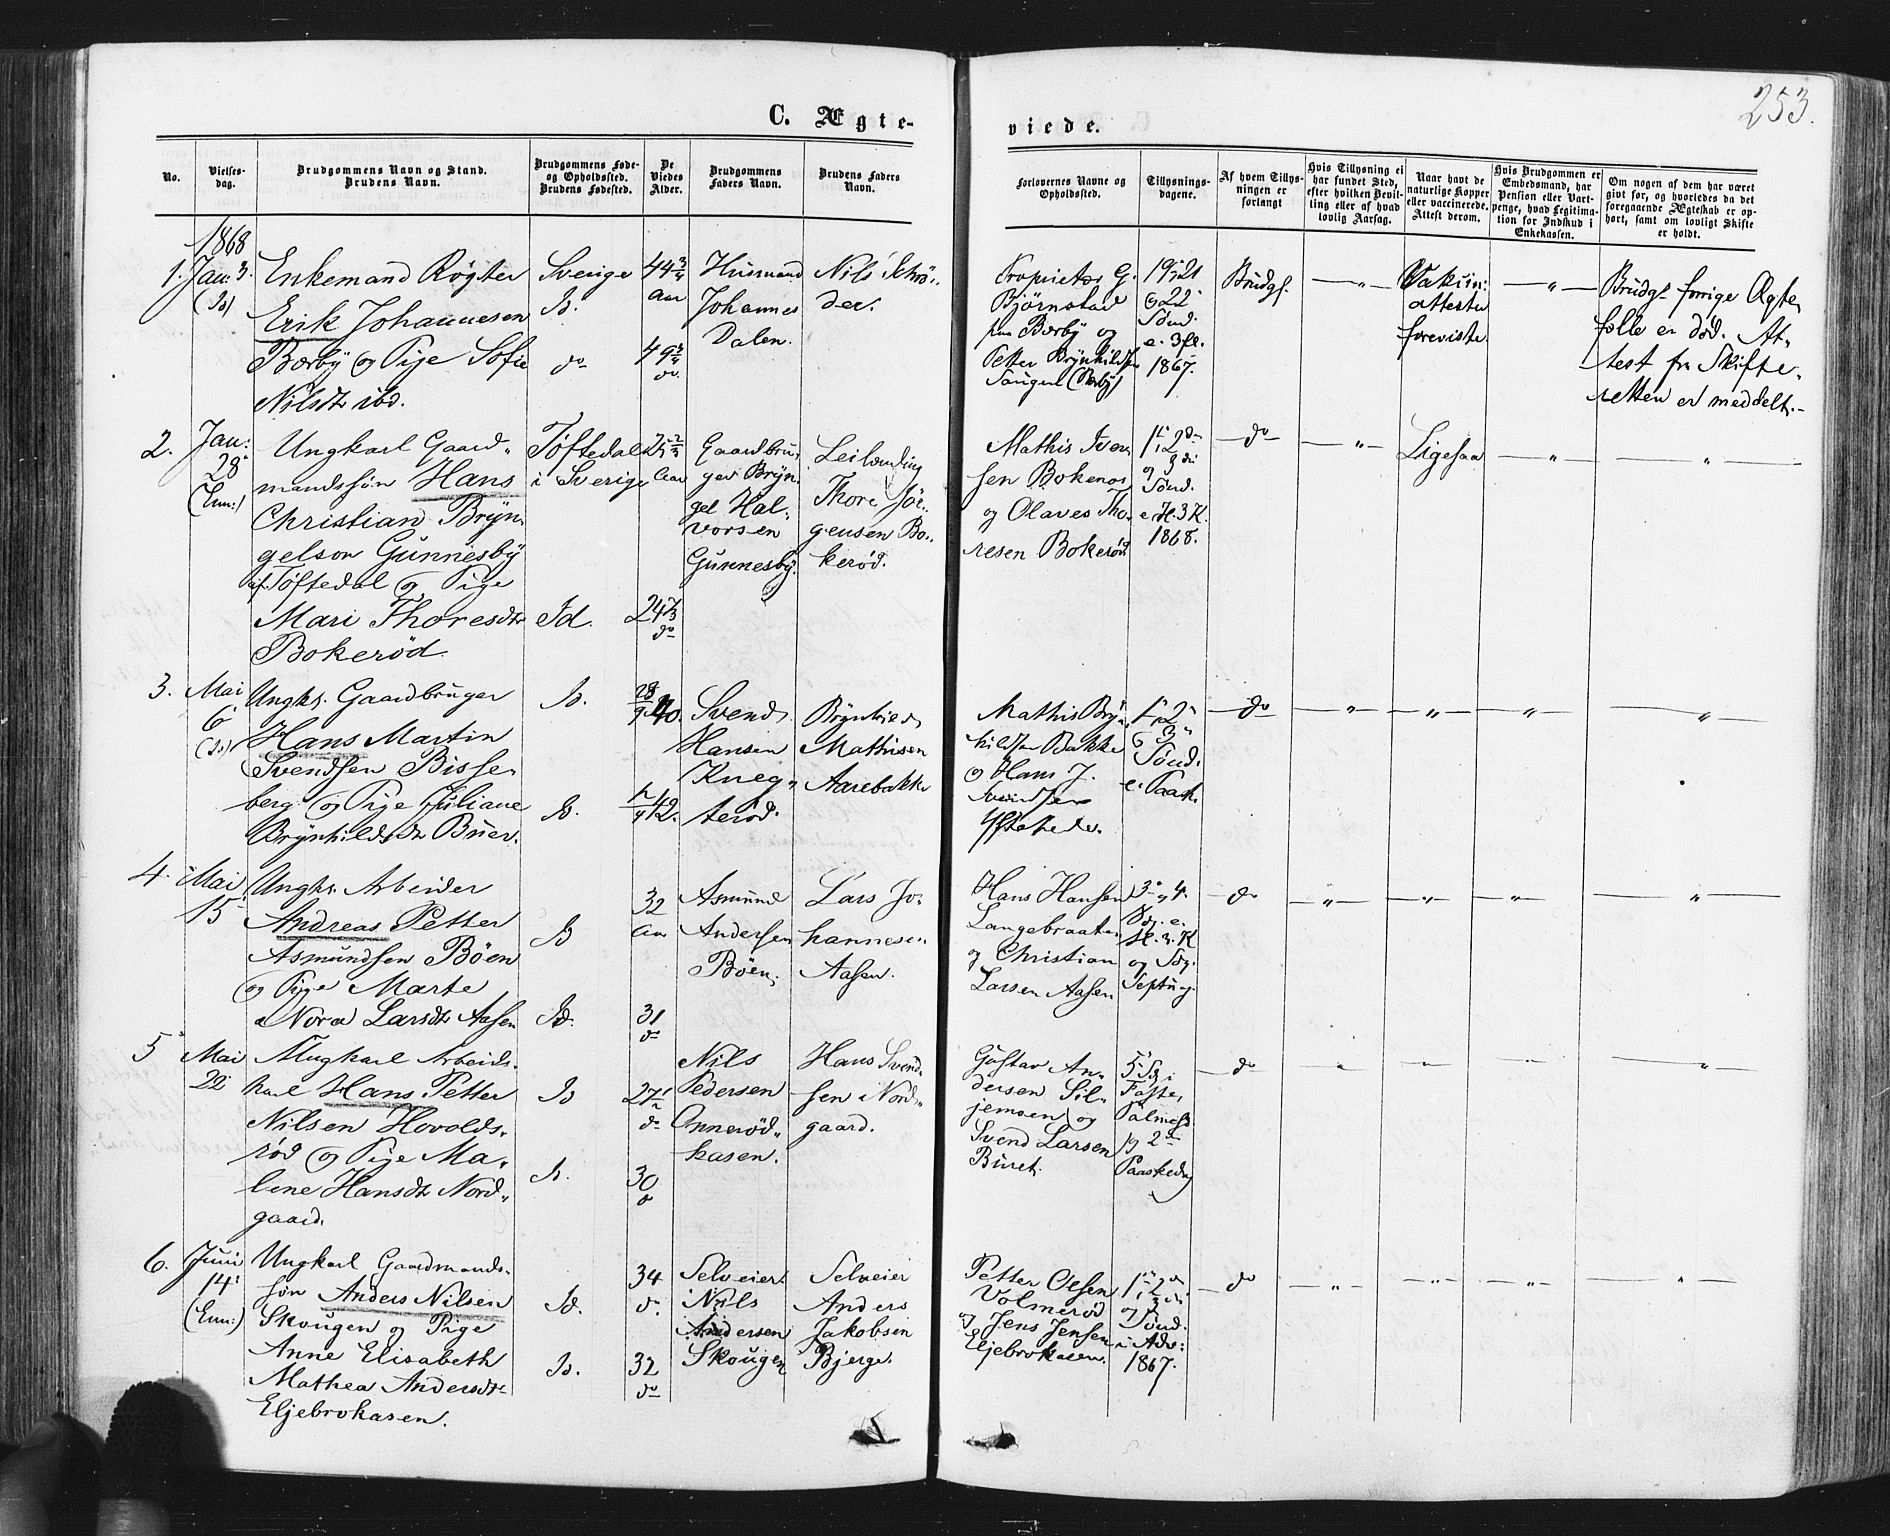 253.
C. Ægte-
viede.
No.
Vielses-
dag.
Brudgommens Navn og Stand.
Brudens Navn.
Brudgommens Føde-
og Opholdssted.
Brudens Fødested.
De
Viedes
Alder.
Brudgommens
Faders Navn.
Brudens Faders
Navn.
Forlovernes Navne og
Opholdssted.
Tillysnings-
dagene.
Af hvem Tillys-
ningen er
forlangt
Hvis Tillysning ei
har fundet Sted,
efter hvilken Bevil-
ling eller af hvad
lovlig Aarsag.
Naar havt de
naturlige Kopper
eller vaccinerede.
Attest derom.
Hvis Brudgommen er
Embedsmand, har
Pension eller Vart-
penge, hvad Legitima-
tion for Indskud i
Enkekassen.
Om nogen af dem har været
givt før, og hvorledes da det
foregaaende Ægteskab er op-
hørt, samt om lovligt Skifte
er holdt.
1868
1. Jan: 3.
(Id)
Enkemand Røgter
Erik Johannesen
Bærby og Pige Sofie
Nilsdtr ibd.
Sverige
Id.
do
44 3/4
Aar
49 3/4
do.
Husmand
Johannes
Dalen.
Nils Schrø-
der.
Proprietær G.
Bjørnstad
paa Bærby og
Petter Brynhildsen
1867.
Brudg.
— " —
Vakcin:
attester
foreviste
— " —
Brudgs forrige Ægte-
fælle er død. At-
test fra Skifte-
retten er meddelt.-
2. Jan:
28
(Enn:)
Ungkarl Gaard-
mandssøn Hans
Christian Bryn-
gelson Gunnesby
af Tøftedal og Pige
Mari Thoresdtr
Bokerød.
Tøftedal
i Sverige
Id.
Aar
do
Gaardbru-
ger Bryn-
gel Hal-
vorsen
Gunnesby.
Leilænding
Thore Jør-
gensen Bo-
kerød.
Mathis Iver-
sen Bokerød
og Olaves Tho-
resen Bokerød
e. H. 3 K.
1868.
— do —
— " —
Ligesaa
— " —
— " —
3. Mai
6
(Id)
Ungkr. Gaardbruger
Hans Martin
Svendsen Bisse-
berg og Pige Juliane
Brynhildsdtr Buer.
Id.
Id.
40.
42.
Svend
Hansen
Kneg-
terød.
Brynhild
Mathisen
Aarebakke
Mathis Bryn-
hildsen Bakke
og Hans J.
Svendsen
Sønd.
e. Paask.
— do —
— " —
— " —
— " —
— " —
4. Mai
15
Ungkr. Arbeider
Andreas Petter
Asmundsen Böen
og Pige Marte
Nora Larsdtr Aasen
Id
Id.
32
Aar
31
do
Asmund
Andersen
Böen.
Lars Jo-
hannesen
Aasen.
Hans Hansen
Langebraaten
og Christian
Larsen Aasen
3 " 4.
Sdg. e.
H. 3. K
og Sdg.
Septuag.
— do —
— " —
— " —
— " —
— " —
5 Mai
22
Ungkarl Arbeids-
karl Hans Petter
Nilsen Hovolds-
rød og Pige Ma-
lene Hansdtr Nord-
gaard.
Id
Id.
27 1/2
do
30
do
Nils
Pedersen
Onnerød-
kasen.
Hans Svend-
sen Nord-
gaard.
Gustav An-
dersen Sil-
jemoen og
Svend Larsen
Buret.
Faste,
Palmes.
og 2den
Paaskedag
— do —
— " —
— " —
— " —
— " —
6. Juni
14
(Enn:)
Ungkarl Gaardmands-
søn Anders Nilsen
Skougen og Pige
Anne Elisabeth
Mathea Andersdtr
Eljebrokasen.
Id.
Id.
34
do.
32
do
Selveier
Nils
Andersen
Skougen
Selveier
Anders
Jakobsen
Bjerge.
Petter Olsen
Volmerød
og Jens Jensen
Eljebrokasen.
og
Sønd.
i Adv:
1867.
— do —
— " —
— " —
— " —
— " —